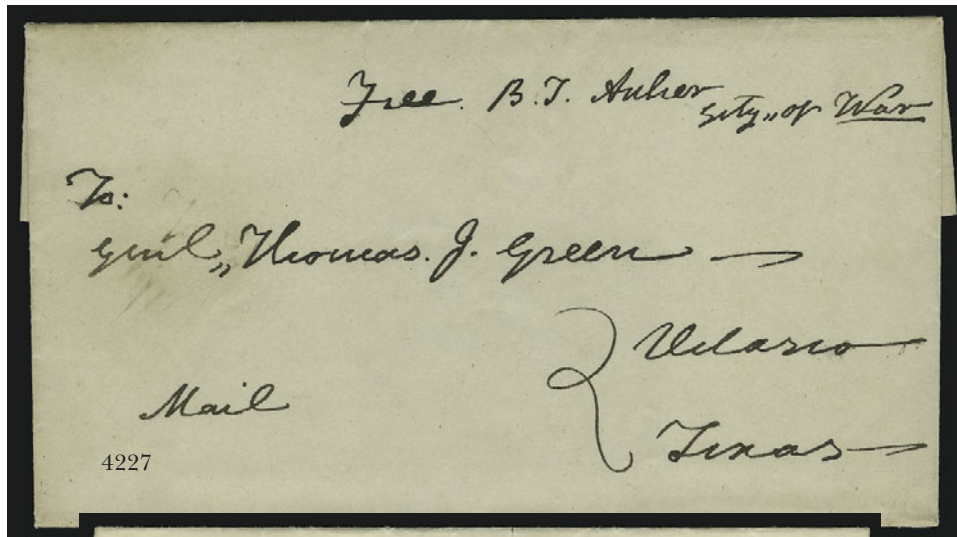 Free. B.T. Archer
Secty,, of War
To:
Genl,, Thomas. J. Green —
Velasco
Mail
Texas
4227